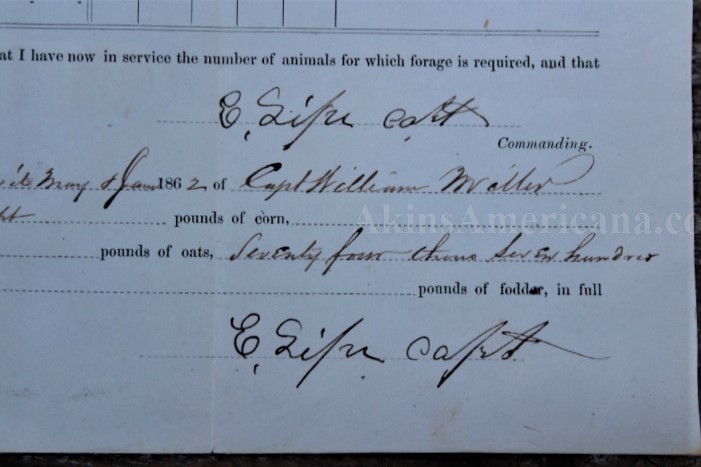 at I have now in service the number of animals for which forage is required, and that
E, Sipe capt
Commanding.
May & June 1862 of Capt William Miller
pounds of corn,
AkinsAmericana.co
pounds of oats, Seventy four thous Seven hundred
pounds of fodder, in full
E, Sipe capt